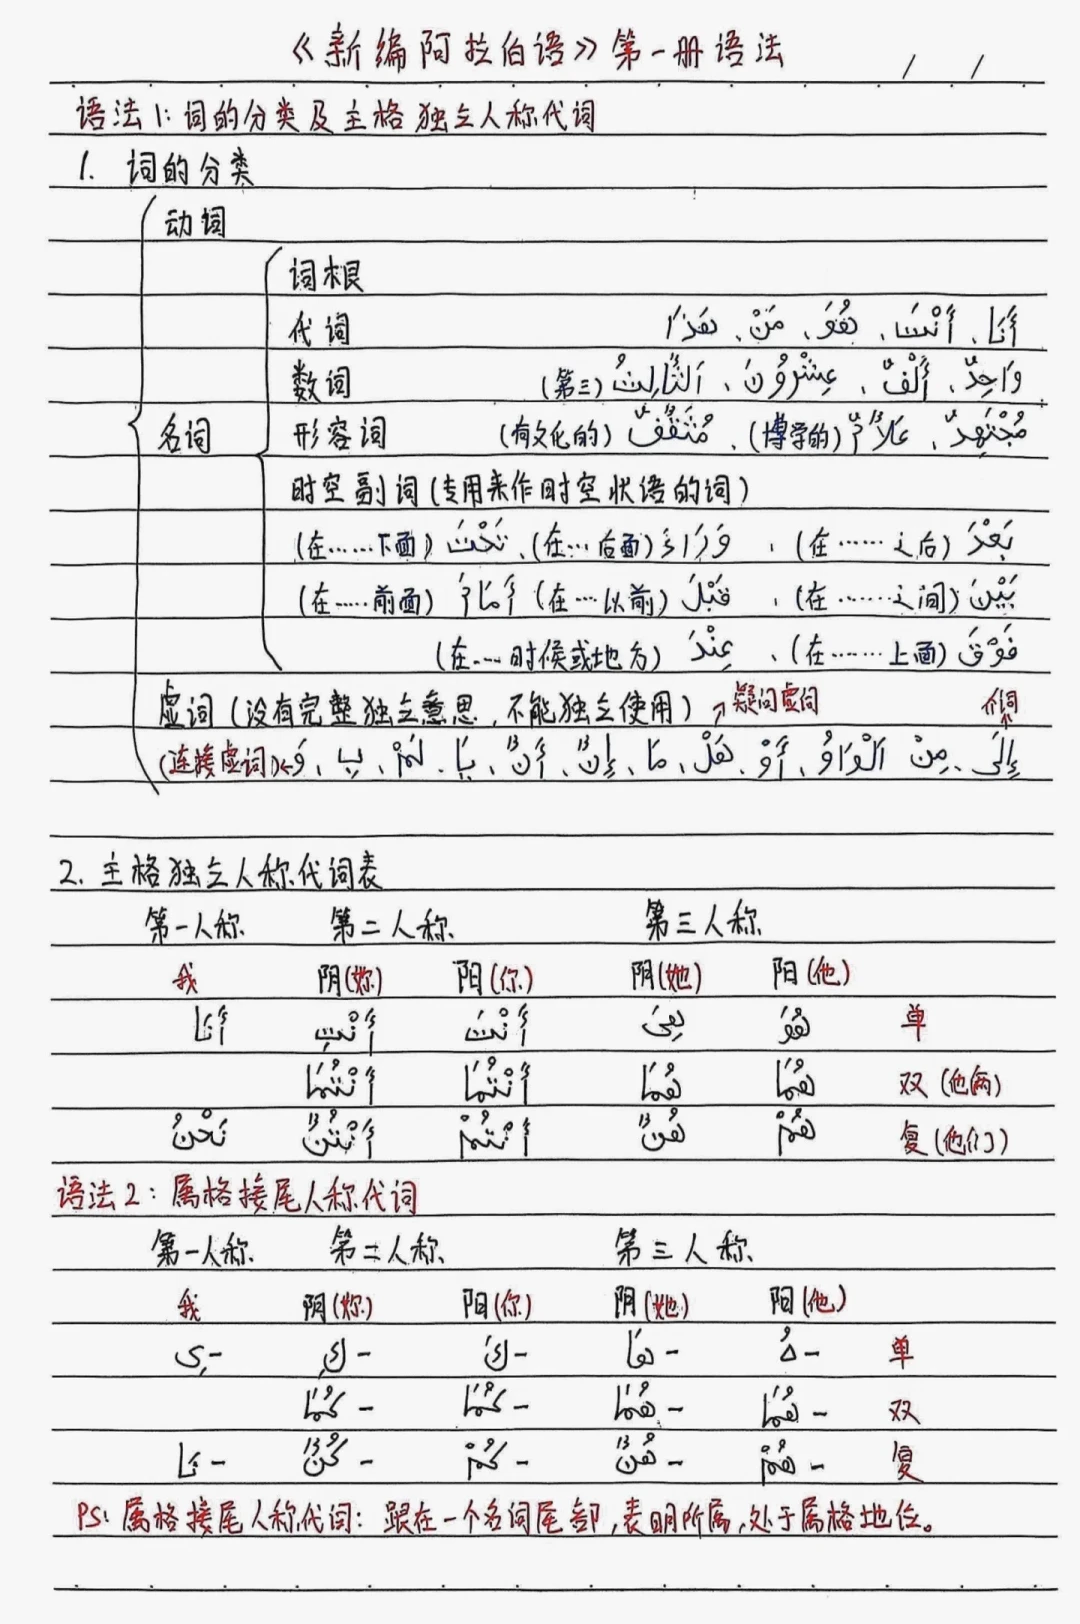 《新编阿拉伯语》第一册语法 / /
语法1: 词的分类及主格独立人称代词
1. 词的分类
动词
词根
代词 أَنَا、أَنْتَ、هُوَ、مَنْ、هَذَا
数词 وَاحِدٌ、أَلْفٌ、عِشْرُونَ、اَلثَّالِثُ (第三)
名词 形容词 مُجْتَهِدٌ、عَلَّامٌ (博学的)、مُثَقَّفٌ (有文化的)
时空副词(专用来作时空状语的词)
بَعْدَ (在……之后)、وَرَاءَ (在…后面)、تَحْتَ (在……下面)
بَيْنَ (在……之间)、قَبْلَ (在…以前) أَمَامَ (在……前面)
فَوْقَ (在……上面)、عِنْدَ (在……时候或地方)
虚词(没有完整独立意思,不能独立使用) ↗疑问虚词 介词
إِلَى、مِنْ اَلْوَاوُ、أَوْ、هَلْ、مَا、إِنَّ、أَنَّ、يَا、لَمْ、بِـ、وَ (连接虚词)
2. 主格独立人称代词表
第一人称 第二人称 第三人称
我 阴(妳) 阳(你) 阴(她) 阳(他)
أَنَا أَنْتِ أَنْتَ هِيَ هُوَ 单
أَنْتُمَا أَنْتُمَا هُمَا هُمَا 双(他俩)
نَحْنُ أَنْتُنَّ أَنْتُمْ هُنَّ هُمْ 复(他们)
语法2: 属格接尾人称代词
第一人称 第二人称 第三人称
我 阴(妳) 阳(你) 阴(她) 阳(他)
ـِي – ـكِ – ـكَ – ـهَا – ـهُ – 单
ـكُمَا – ـكُمَا – ـهُمَا – ـهُمَا – 双
ـنَا – ـكُنَّ – ـكُمْ – ـهُنَّ – ـهُمْ – 复
PS: 属格接尾人称代词: 跟在一个名词尾部,表明所属,处于属格地位。